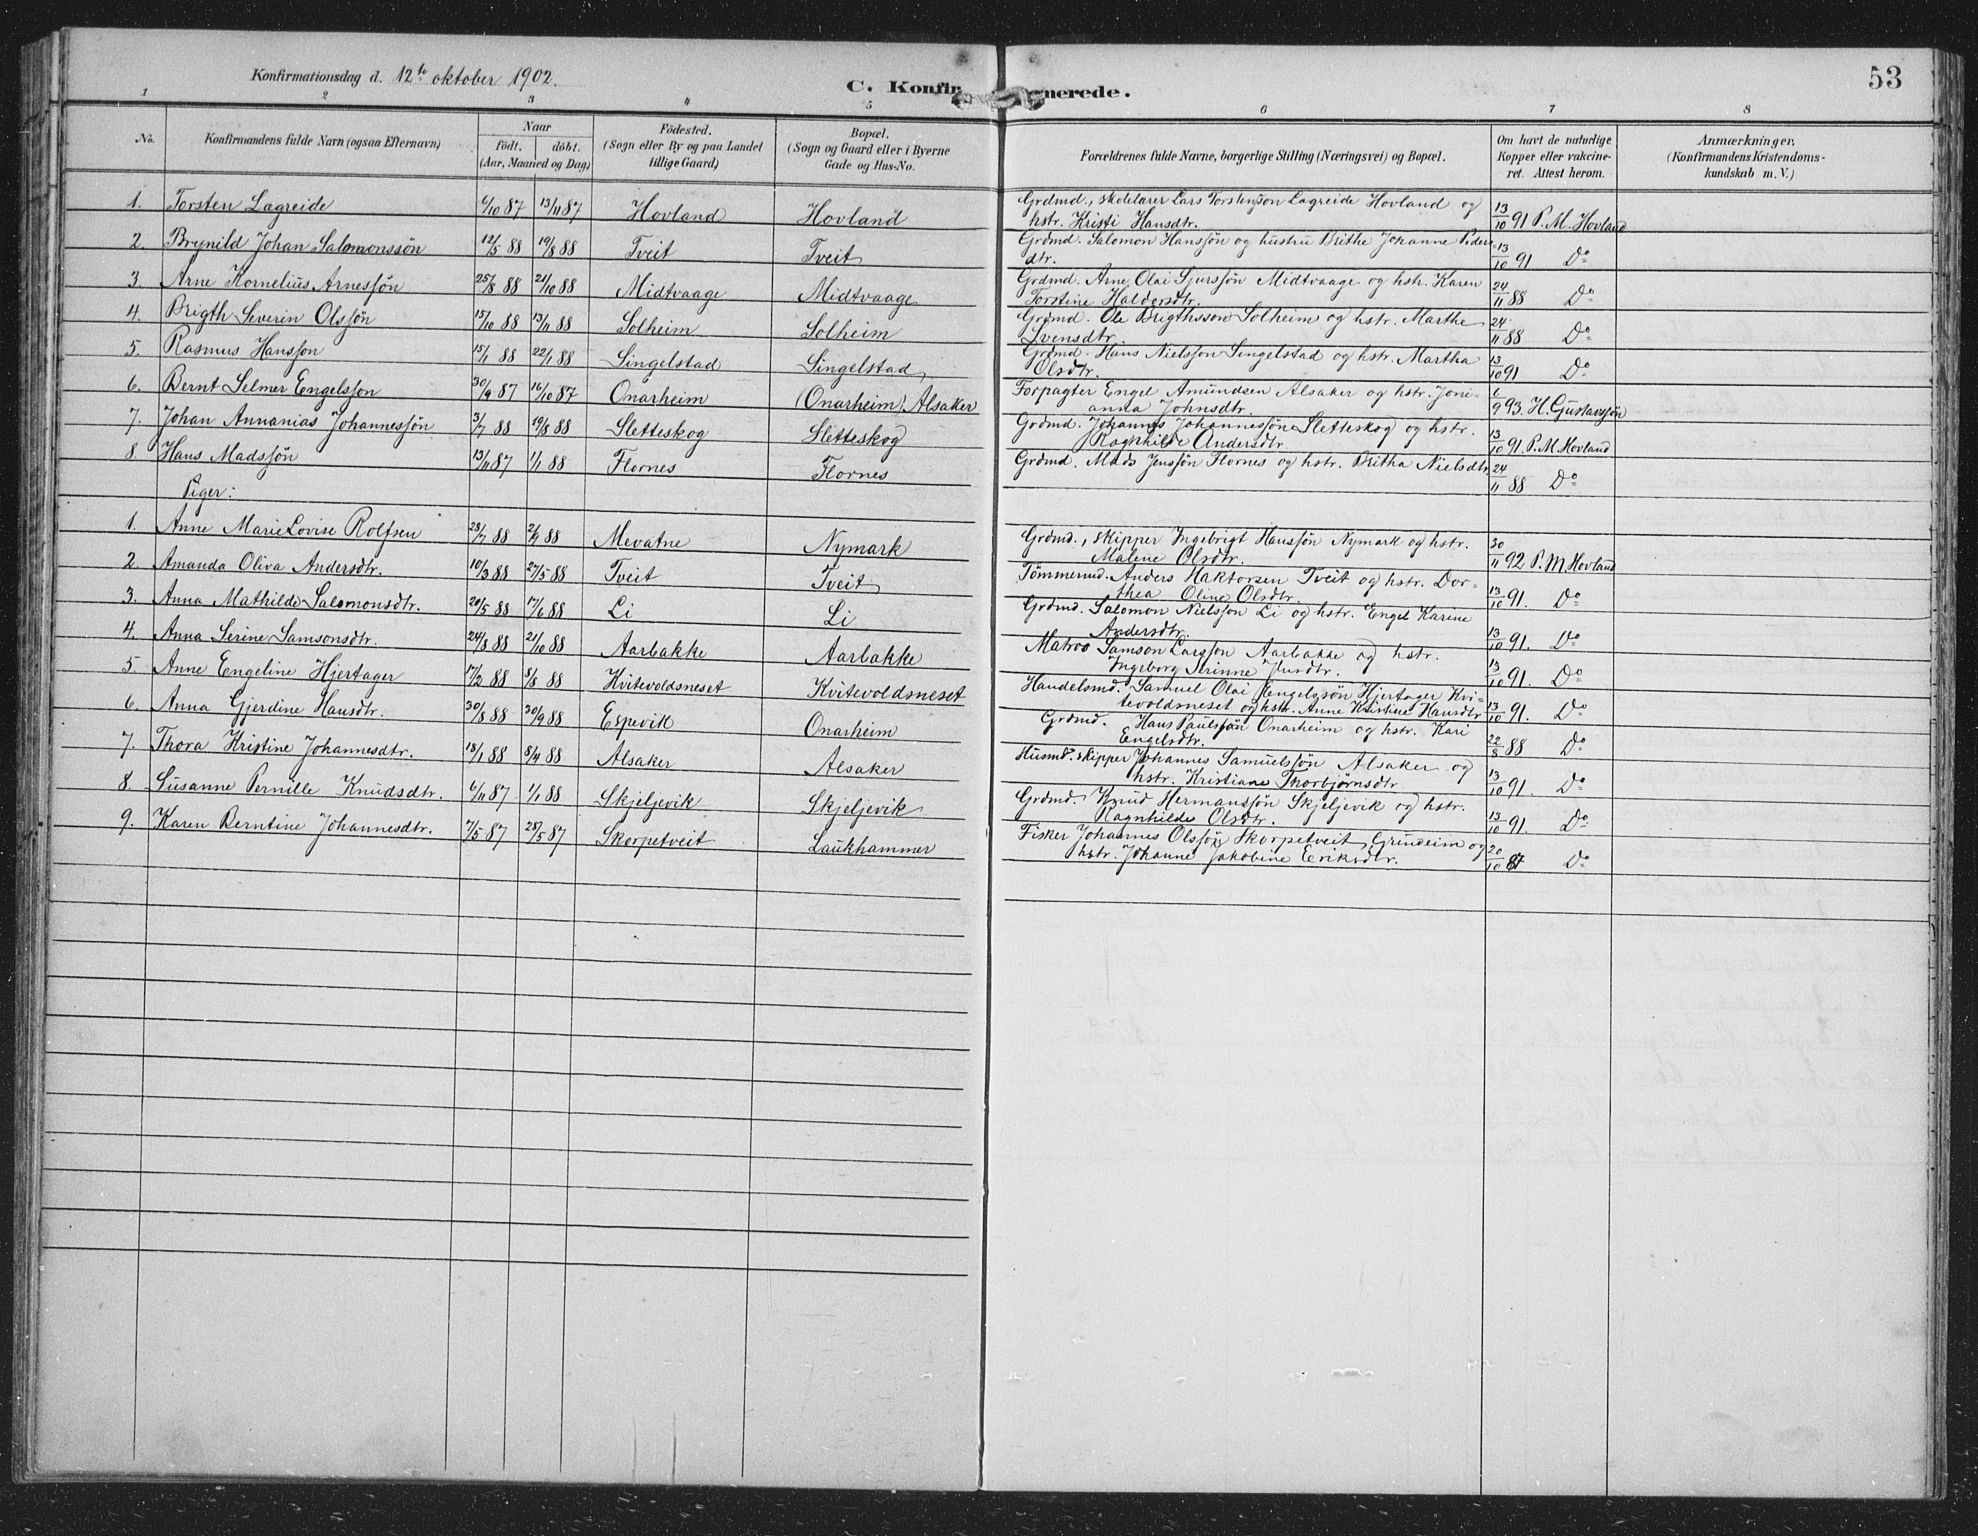 Konfirmationsdag d. 12te oktober 1902.
C. Konfirmerede.
53
1 2 3 4 5 6 7 8
No. Konfirmandens fulde Navn (ogsaa Efternavn) Naar födt. döbt. (Aar, Maaned og Dag) Födested. (Sogn eller By og paa Landet tillige Gaard) Bopæl. (Sogn og Gaard eller i Byerne Gade og Hus-No. Forældrenes fulde Navne, borgerlige Stilling (Næringsvei) og Bopæl. Om havt de naturlige Kopper eller vakcineret. Attest herom. Anmærkninger. (Konfirmandens Kristendomskundskab m. V.)
1. Torsten Lagreide 6/10 87 13/11 87 Hovland Hovland Grdmd., skolelærer Lars Torstensøn Lagreide Hovland og
hstr. Kristi Hansdtr. 13/10 91 P. M. Hovland
2. Brynild Johan Salomonssön 12/5 88 19/8 88 Tveit Tveit Grdmd. Salomon Hanssjön og hustru Brithe Johanne Peders-
dtr. 13/10 91 Do
3. Arne Kornelius Arnessjön 25/8 88 21/10 88 Midtvaage Midtvaage Grdmd. Arne Olai Sjurssjön Midtvaage og hstr. Karen
Torstine Haldorsdtr. 24/11 88 Do
4. Brigth Severin Olssjön 15/10 88 13/11 88 Solheim Solheim Grdmd. Ole Brigthsson Solheim og hstr. Marthe
Svensdtr. 24/11 88 Do
5. Rasmus Hansson 15/1 88 22/1 88 Singelstad Singelstad Grdmd. Hans Nielsson Singelstad og hstr. Martha
Olsdtr. 13/10 91 Do
6. Bernt Selmer Engelsson 30/9 87 16/10 87 Onarheim (Onarheim) Alsaker Forpagter Engel Amundsen Alsaker og hstr. Joni-
anna Johnsdtr. 6/9 93. H. Gustavsjön
7. Johan Annanias Johannessjön 3/7 88 19/8 88 Sletteskog Sletteskog Grdmd. Johannes Johannessjön Sletteskog og hstr.
Ragnhilde Andersdtr. 13/10 91 P. M. Hovland
8. Hans Madssjön 13/11 87 1/1 88 Flornes Flornes Grdmd. Mads Jenssjön Flornes og hstr. Britha Nielsdtr. 24/11 88 Do
Piger:
1. Anne Marie Lovise Rolfsen 88 88 Mevatne Nymark Grdmd., skipper Ingebrigt Hanssjön Nymark og hstr.
Malene Olsdtr. 30/11 92 P. M. Hovland
2. Amanda Oliva Andersdtr. 10/3 88 27/5 88 Tveit Tveit Tömmermd. Anders Haktorsen Tveit og hstr. Dor-
thea Oline Olsdtr. 13/10 91. Do
3. Anna Mathilde Salomonsdtr. 20/5 88 17/6 88 Li Li Grdmd. Salomon Nielssjon Li og hstr. Engel Karine
Andersdtr. 13/10 91. Do
4. Anna Serine Samsonsdtr. 24/8 88 21/10 88 Aarbakke Aarbakke Matros Samson Larssjon Aarbakke og hstr.
Ingeborg Serinne 13/10 91. Do
5. Anne Engeline Hjertager 17/2 88 88 Kvitevoldsneset Kvitevoldsneset Handelsmd. Samuel Olai Engelssjön Hjertager Kvi-
tevoldsneset og hstr. Anne Kristine Hansdtr 13/10 91. Do
6. Anna Gjerdine Hansdtr. 30/8 88 30/9 88 Espevik Onarheim Grdmd. Hans Paulssjön Onarheim og hstr. Kari
Engelsdtr. 22/8 88 Do
7. Thora Kristine Johannesdtr. 18/1 88 8/4 88 Alsaker Alsaker Husmd. skipper Johannes Samuelssjön Alsaker og
hstr. Kristiane Thorbjørnsdtr 13/10 91. Do
8. Susanne Pernille Knudsdtr. 6/11 87 1/1 88 Skjeljevik Skjeljevik Grdmd. Knud Hermanssjön Skjeljevik og hstr.
Ragnhilde Olsdtr. 13/10 91. Do
9. Karen Berntine Johannesdtr. 7/5 87 28/5 87 Skorpetveit Laukhammer Fisker Johannes Olssjön Skorpetveit, Grindeim og
hstr. Johanne Jakobine Eriksdtr. 20/10 87 Do